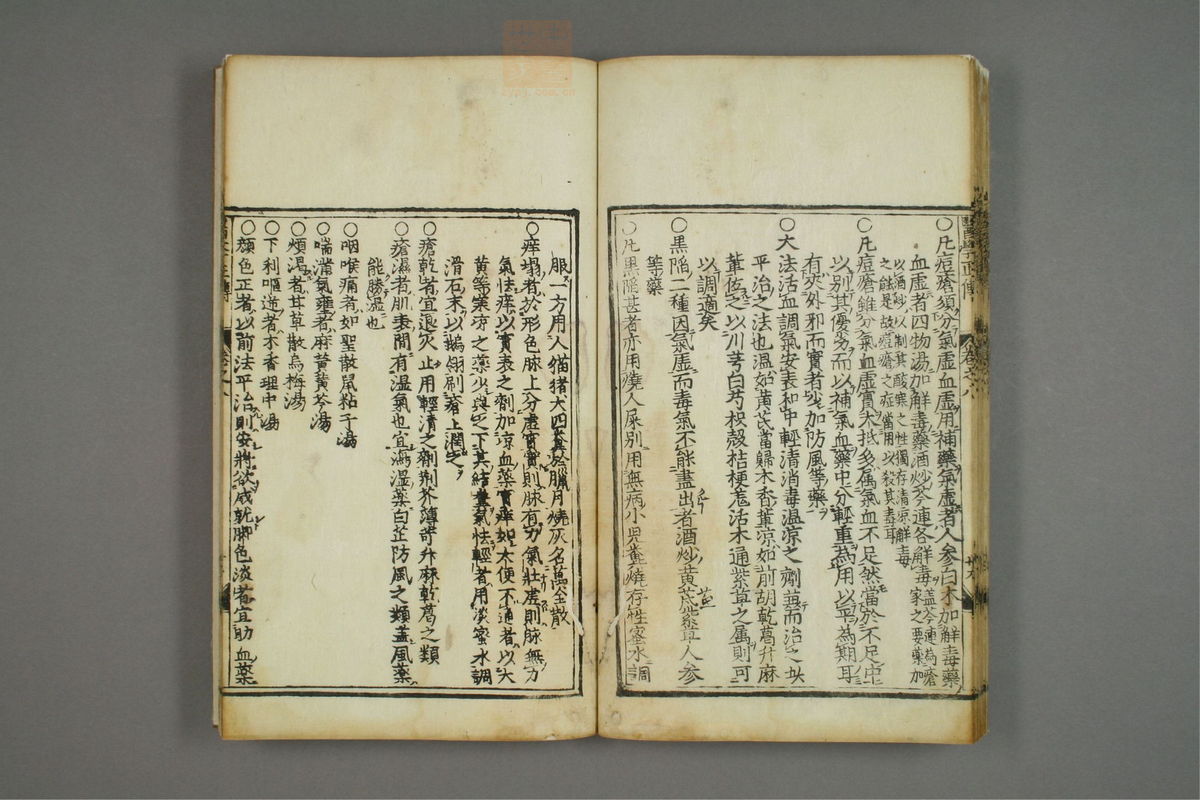 ○凡痘瘡須分氣虛血虛用補藥氣虛者人參白朮加解毒藥
血虛者四物湯加解毒藥酒炒芩連各解毒蓋芩連為瘡家之要藥加
以酒炒以制其酸寒之性獨存清凉解毒
之能是故痘瘡之症當用以殺其毒耳
○凡痘瘡雖分氣血虛實大抵多属氣血不足然當於不足中
以別其優劣而以補氣血藥中分輕重為用以平為期耳
有夾外邪而實者少加防風等藥
○大法活血調氣安表和中輕清消毒温凉之劑兼而治之
平治之法也温如黄芪當歸木香軰凉如前胡乾葛升麻
軰佐之以川芎白芍枳殻桔梗羗活木通紫草之属則可
以調適矣
○黑陷二種因氣虛而毒氣不能盡出者酒炒黄芪紫草人參
等藥
○凡黑陷甚者亦用燒人屎別用無病小兒糞燒存性蜜水調
醫學正傳 卷之八
服一方用人猫猪犬四糞於臘月燒灰名萬金散
○痒塌者於形色脉上分虛實實則脉有力氣壯虛則脉無力
氣怯痒以實表之劑加凉血藥實痒如大便不通者以大
黄等寒凉之藥少與之下其結糞氣怯輕者用淡蜜水調
滑石末以鵝翎刷瘡上潤之
○瘡乾者宜退火止用輕清之劑荆芥薄荷升麻乾葛之類
○瘡濕者肌表間有湿氣也宜瀉湿藥白芷防風之類盖風藥
能勝湿也
○咽喉痛者如聖散鼠粘子湯
○喘滿氣壅者麻黄黄芩湯
○煩渴者甘草散烏梅湯
○下利嘔逆者木香理中湯
○顔色正者以前法平治則安將欲成就脚色淡者宜助血藥